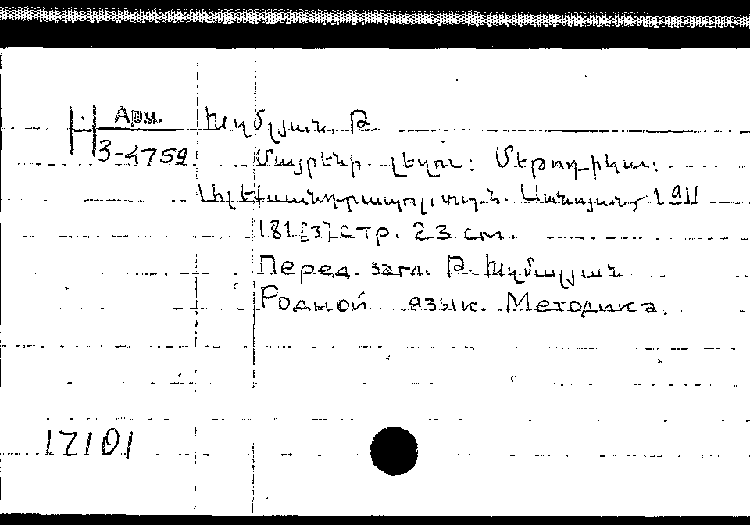 Арм. Խզմլյան. Թ
3-4759 Մայրենի լեզու: Մեթոդիկա:
Ալեքսանդրապոլ, տպ. 1911
181[3] стр. 23 см.
Перед. загл. Թ. Խզմալյան
Родной язык. Методика.
17101